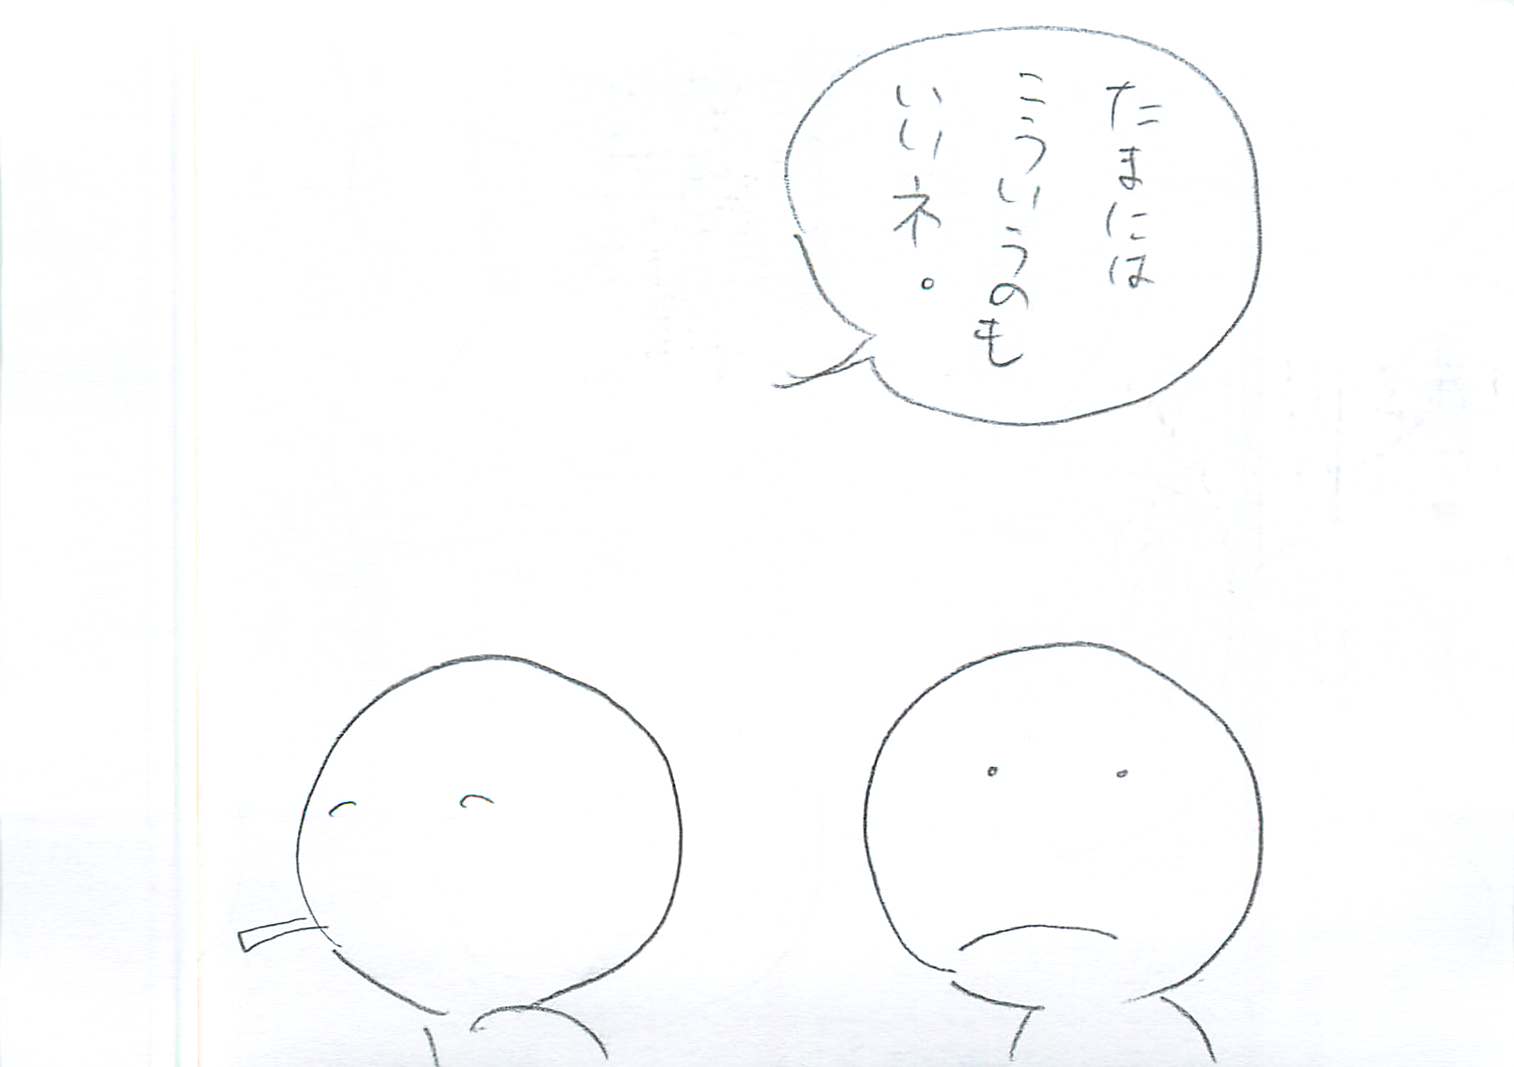 たまには
こういうのも
いいネ。